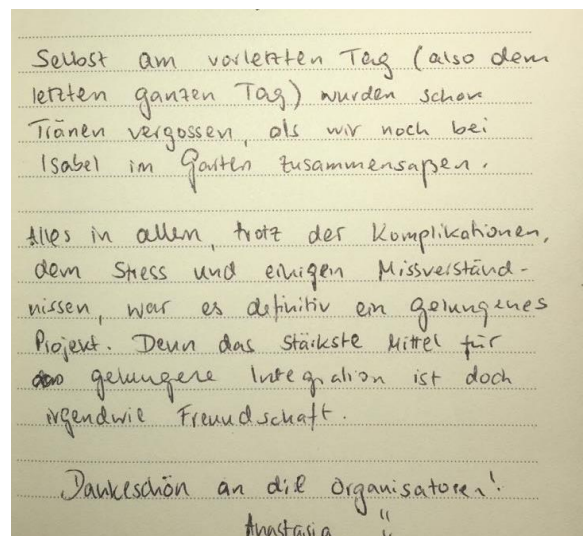 Selbst am vorletzten Tag (also dem
letzten ganzen Tag) wurden schon
Tränen vergossen, als wir noch bei
Isabel im Garten zusammensaßen.
Alles in allen, trotz der Komplikationen,
dem Stress und einigen Missverständ-
nissen, war es definitiv ein gelungenes
Projekt. Denn das stärkste Mittel für
gelungene Integration ist doch
irgendwie Freundschaft.
Dankeschön an die Organisatoren!
Anastasia